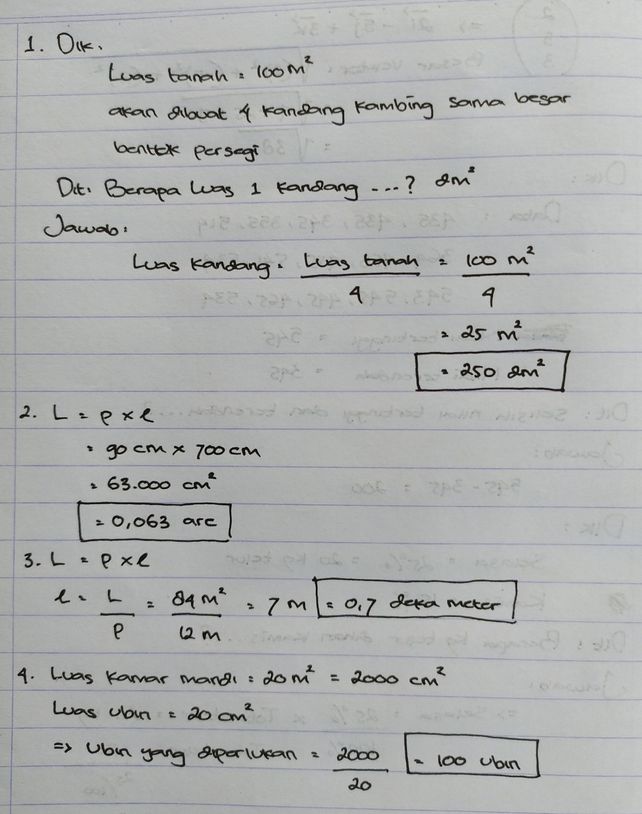 1. Dik.
Luas tanah = 100 m²
akan dibuat 4 kandang kambing sama besar
bentuk persegi
Dit. Berapa luas 1 kandang ...? dm²
Jawab:
Luas Kandang = Luas tanah / 4 = 100 m² / 4
= 25 m²
= 250 dm²
2. L = p x l
= 90 cm x 700 cm
= 63.000 cm²
= 0,063 are
3. L = p x l
l = L / p = 84 m² / 12 m = 7 m = 0,7 deka meter
4. Luas kamar mandi = 20 m² = 2000 cm²
Luas ubin = 20 cm²
=> Ubin yang diperlukan = 2000 / 20 = 100 ubin